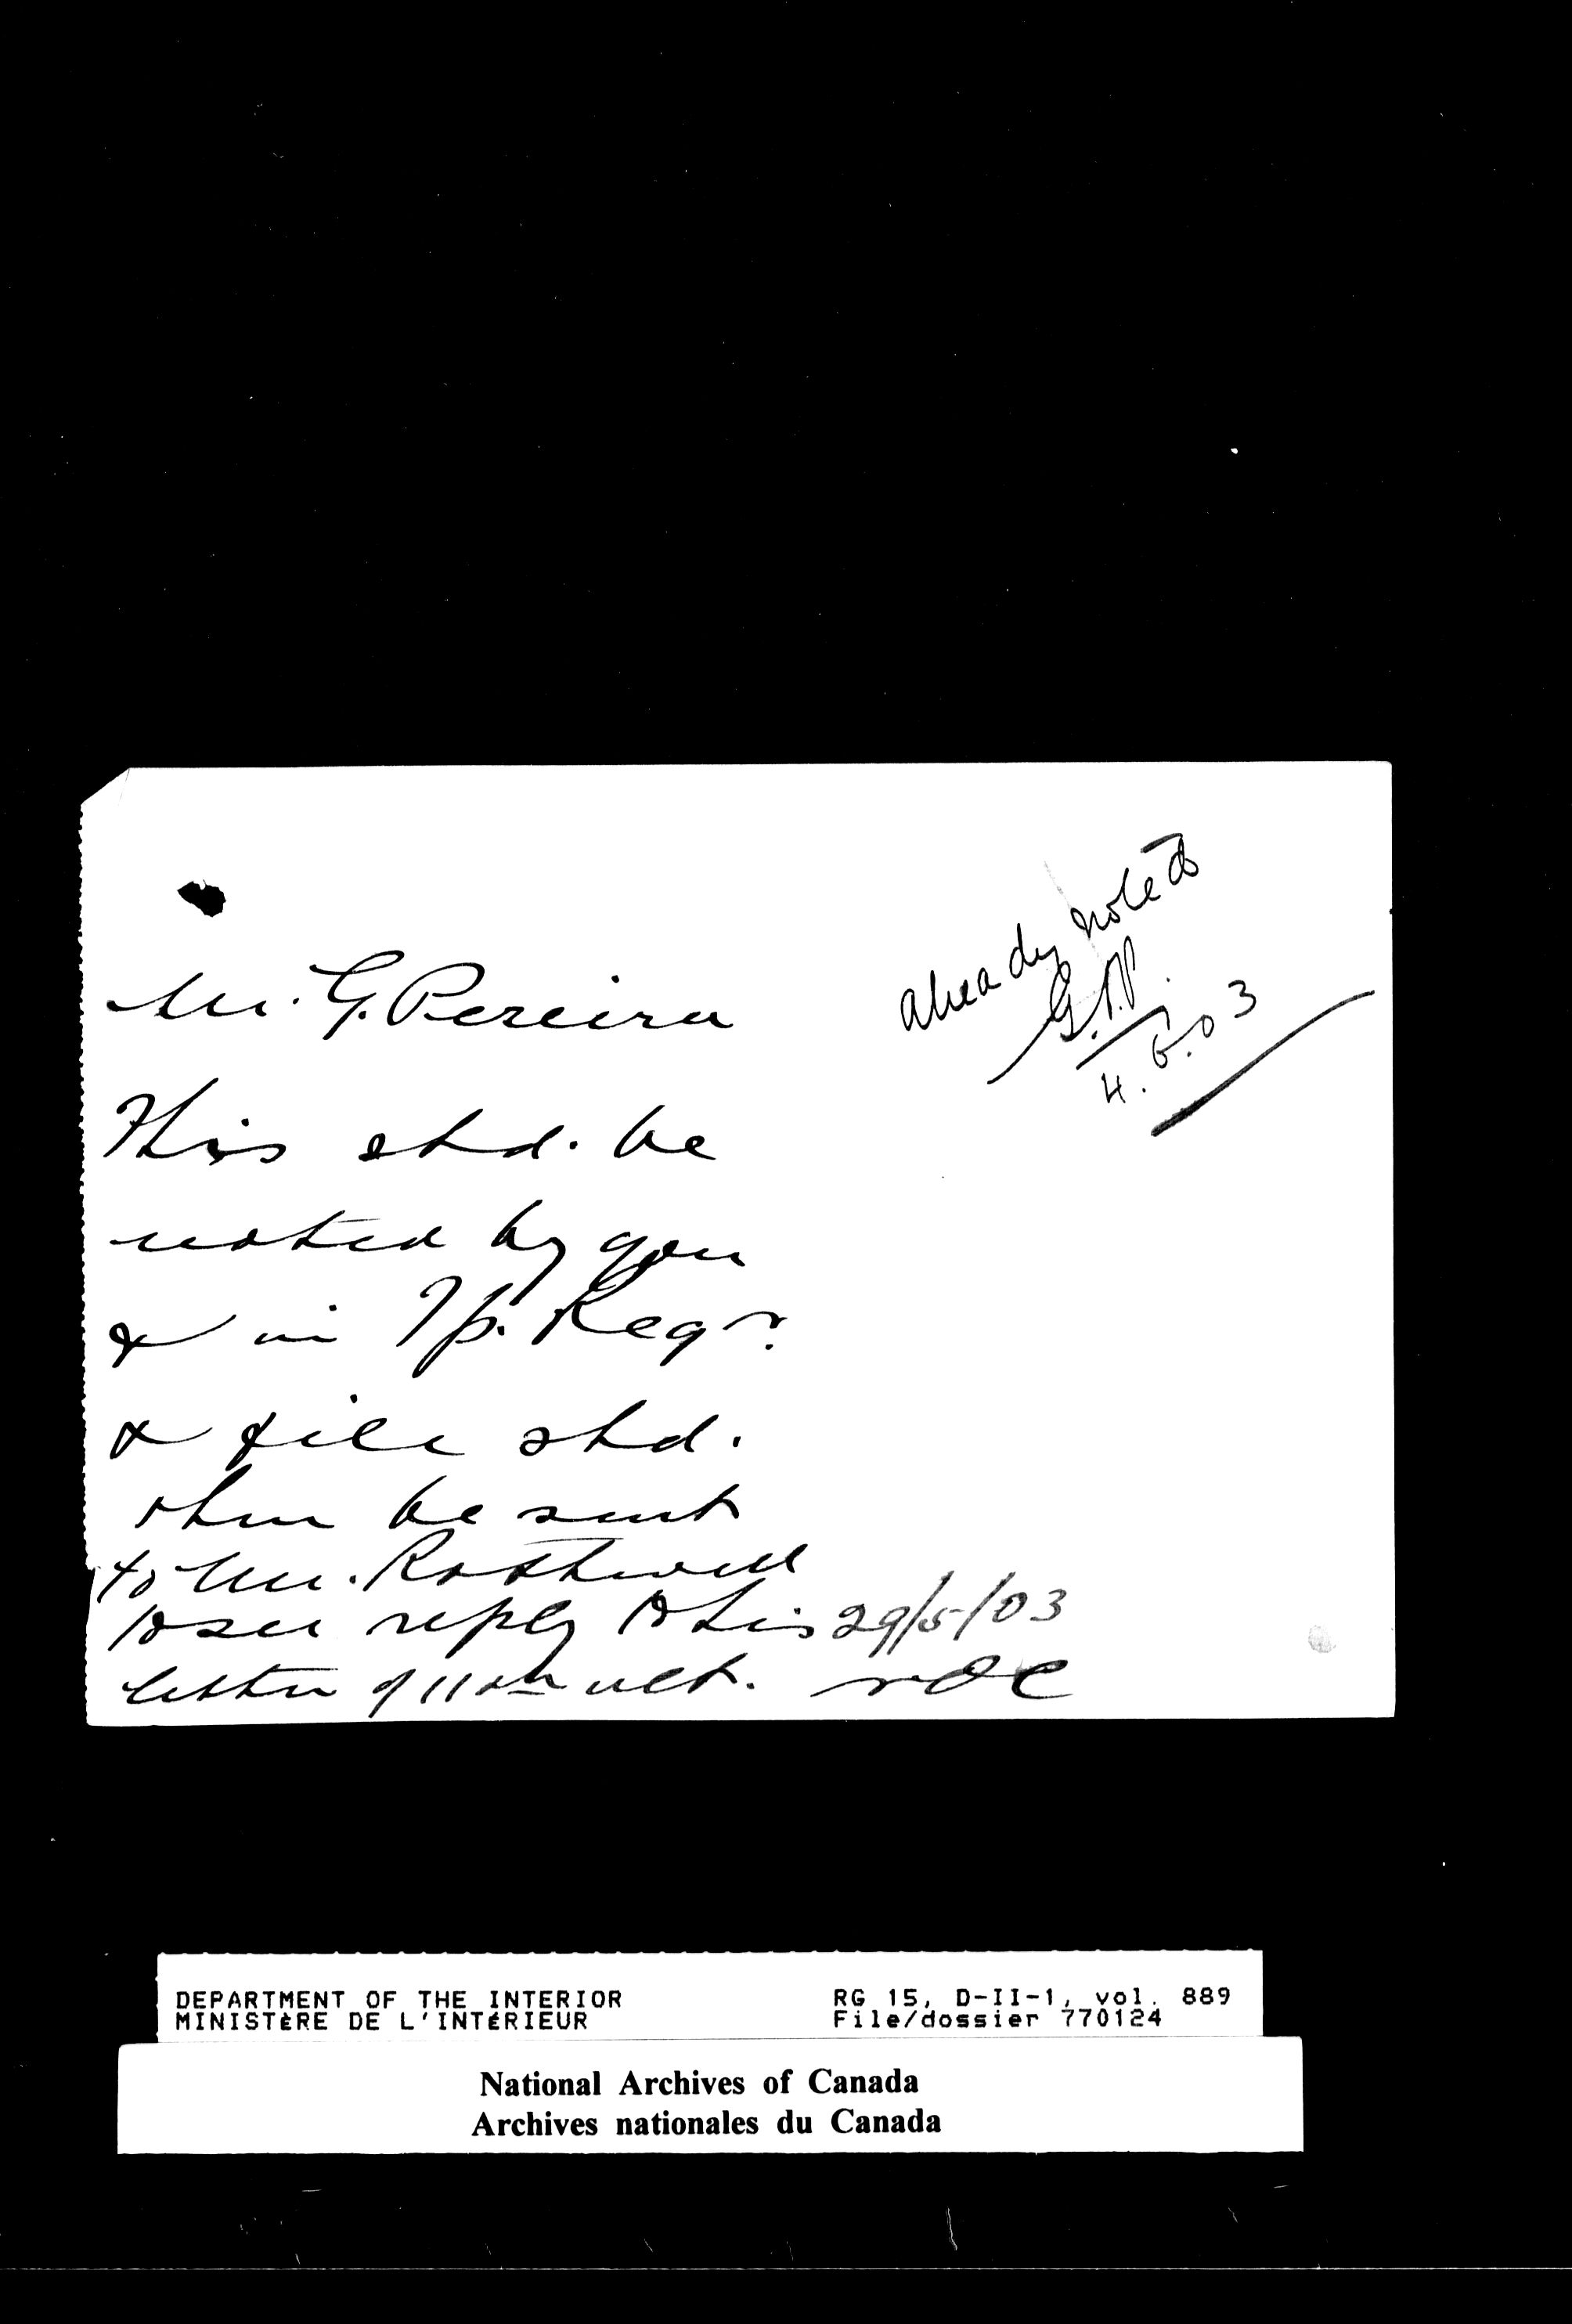 already noted
G.P.
4.6.03
Mr. G. Pereira
This shd. be
noted by you
& in Tp. Regr.
& file shd.
then be sent
to Mr. Rothwell
to see reply to his 29/5/03
letter of 11th ult.
DEPARTMENT OF THE INTERIOR RG 15, D-II-1, vol. 889
MINISTÈRE DE L'INTÉRIEUR File/dossier 770124
National Archives of Canada
Archives nationales du Canada